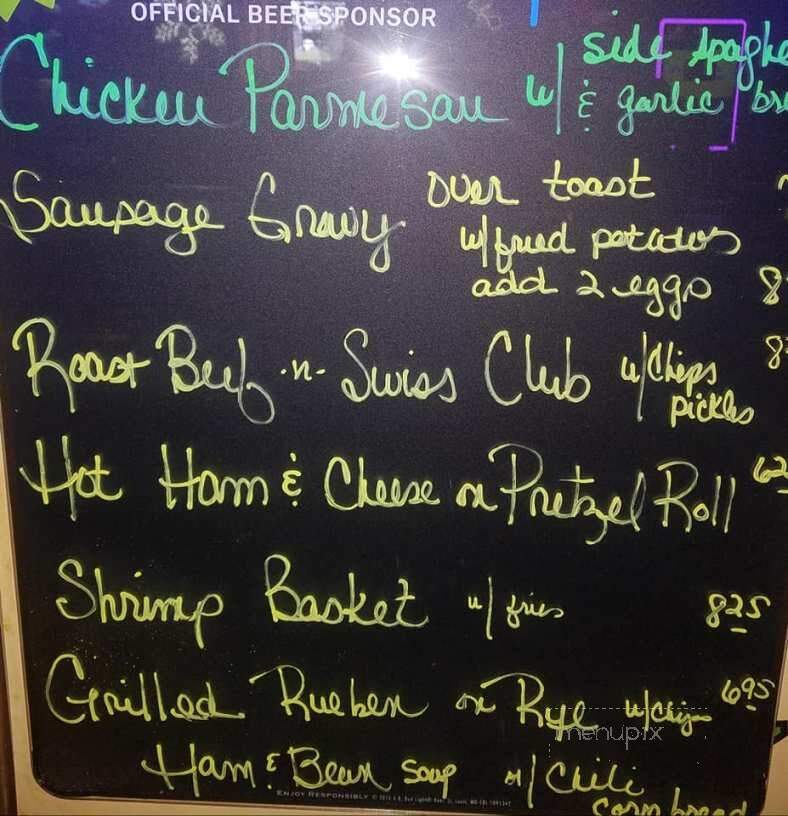 OFFICIAL BEER SPONSOR
side
Chicken Parmesan w/ & garlic
Sausage Gravy over toast
w/fried potatoes
add 2 eggs 8
Roast Beef -n- Swiss Club w/Chips
pickles
Hot Ham & Cheese on Pretzel Roll
Shrimp Basket w/ fries 825
Grilled Rueben on Rye 695
menupix
Ham & Bean soup Chili
corn bread
ENJOY RESPONSIBLY